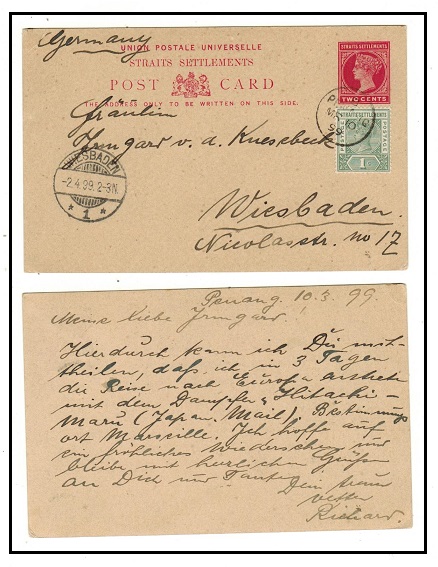 Germany
UNION POSTALE UNIVERSELLE
STRAITS SETTLEMENTS
POST CARD
THE ADDRESS ONLY TO BE WRITTEN ON THIS SIDE.
STRAITS SETTLEMENTS
TWO CENTS
STRAITS SETTLEMENTS
POSTAGE
POSTAGE
1
Fräulein
Irmgard v. d. Knesebeck
WIESBADEN
-2.4.99.2-3N.
* 1 *
Wiesbaden.
Nicolasstr. No 17
Penang. 10.3.99.
Meine liebe Irmgard!
Hierdurch kann ich Dir mit-
theilen, daß ich in 3 Tagen
die Reise nach Europa antrete
mit dem Dampfer „Hitachi-
Maru (Japan. Mail). Bestimmungs
ort Marseille. Ich hoffe auf
ein fröhliches Wiedersehen und
bleibe mit herzlichen Grüßen
an Dich und Tante
Dein treuer
Vetter
Richard.